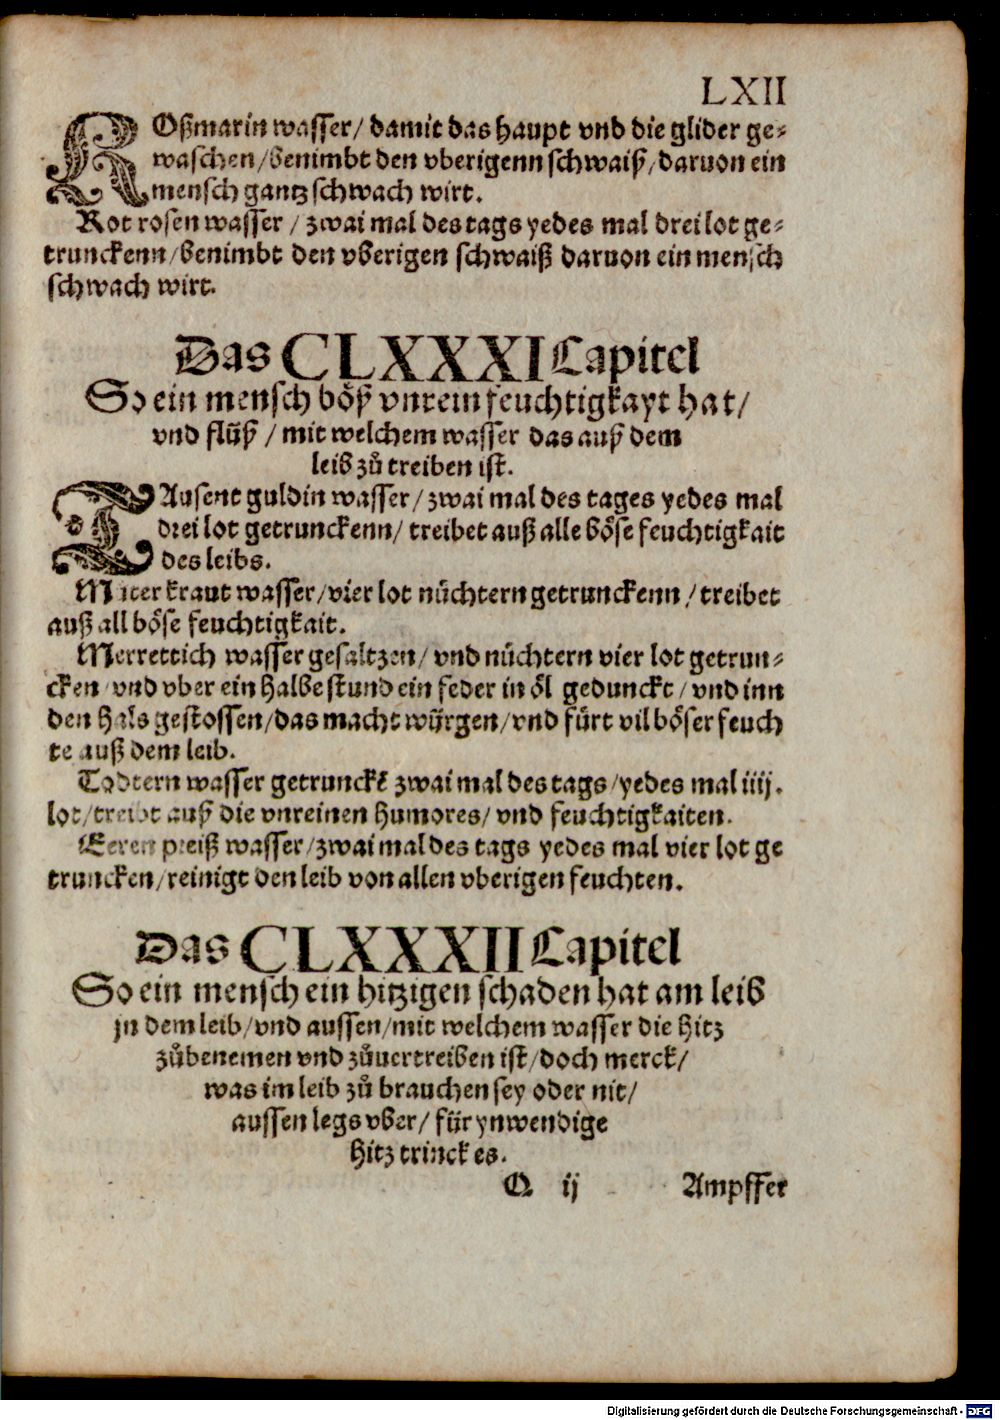 LXII
ROßmarin wasser/ damit das haupt vnd die glider ge⸗
waschen/benimbt den vberigenn schwaiß/daruon ein
mensch gantz schwach wirt.
Rot rosen wasser / zwai mal des tags yedes mal drei lot ge⸗
trunckenn/benimbt den vberigen schwaiß daruon ein mensch
schwach wirt.
Das CLXXXI Capitel
So ein mensch böß vnrein feuchtigkayt hat/
vnd flüß / mit welchem wasser das auß dem
leib zů treiben ist.
TAusent guldin wasser/ zwai mal des tages yedes mal
drei lot getrunckenn/ treibet auß alle böse feuchtigkait
des leibs.
Miter kraut wasser/vier lot nüchtern getrunckenn/ treibet
auß all böse feuchtigkait.
Merrettich wasser gesaltzen/ vnd nüchtern vier lot getrun⸗
cken/vnd vber ein halbe stund ein feder in öl gedunckt/ vnd inn
den hals gestossen/das macht würgen/vnd fürt vil böser feuch
te auß dem leib.
Todtern wasser getrunckẽ zwai mal des tags/yedes mal iiij.
lot/treibt auß die vnreinen humores/ vnd feuchtigkaiten.
Eeren preiß wasser/zwai mal des tags yedes mal vier lot ge
truncken/reinigt den leib von allen vberigen feuchten.
Das CLXXXII Capitel
So ein mensch ein hitzigen schaden hat am leib
jn dem leib/vnd aussen/mit welchem wasser die hitz
zůbenemen vnd zůuertreiben ist/doch merck/
was im leib zů brauchen sey oder nit/
aussen legs vber/ für ynwendige
hitz trinck es.
Q ij Ampffer
Digitalisierung gefördert durch die Deutsche Forschungsgemeinschaft - DFG